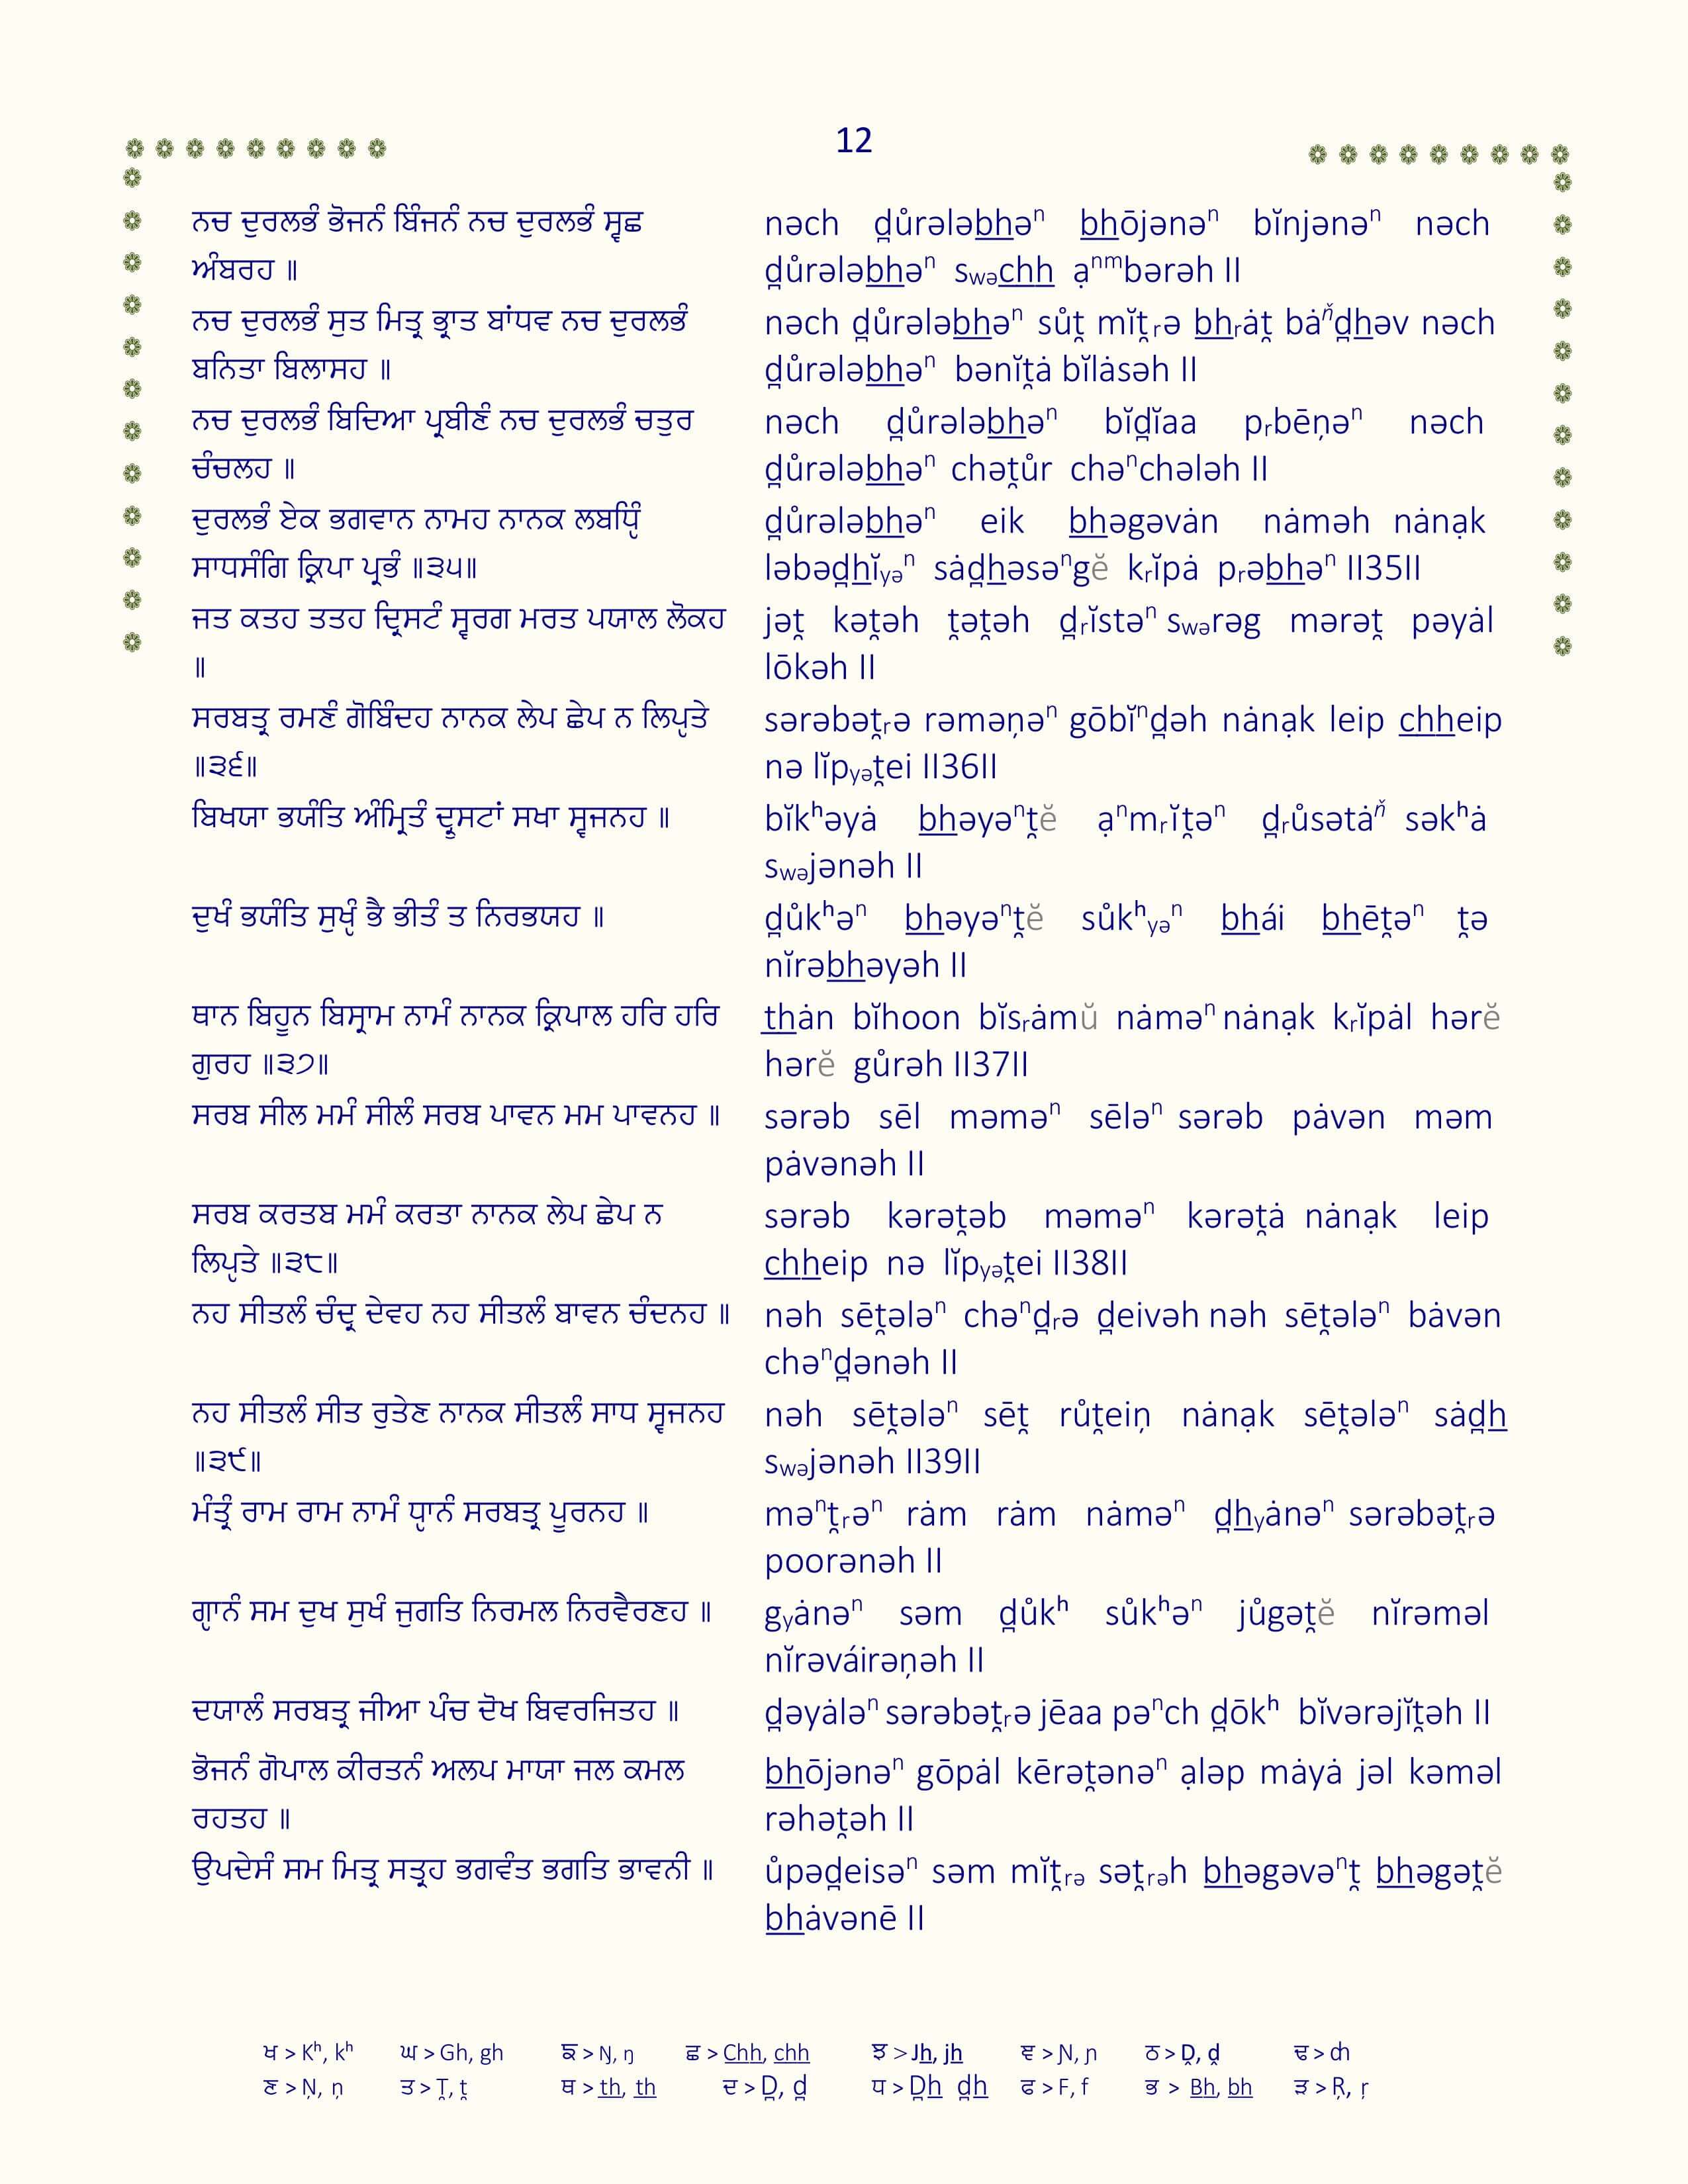 12
ਨਚ ਦੁਰਲਭੰ ਭੋਜਨੰ ਬਿੰਜਨੰ ਨਚ ਦੁਰਲਭੰ ਸ੍ਵਛ
ਅੰਬਰਹ ॥
nəch d̪ůrələbhəⁿ bhōjənəⁿ bĭnjənəⁿ nəch
d̪ůrələbhəⁿ swəchh ạⁿᵐbərəh II
ਨਚ ਦੁਰਲਭੰ ਸੁਤ ਮਿਤ੍ਰ ਭ੍ਰਾਤ ਬਾਂਧਵ ਨਚ ਦੁਰਲਭੰ
ਬਨਿਤਾ ਬਿਲਾਸਹ ॥
nəch d̪ůrələbhəⁿ sůt̪ mĭt̪ᵣə bhᵣȧt̪ bȧᶇ̌d̪həv nəch
d̪ůrələbhəⁿ bənĭt̪ȧ bĭlȧsəh II
ਨਚ ਦੁਰਲਭੰ ਬਿਦਿਆ ਪ੍ਰਬੀਣੰ ਨਚ ਦੁਰਲਭੰ ਚਤੁਰ
ਚੰਚਲਹ ॥
nəch d̪ůrələbhəⁿ bĭd̪ĭaa pᵣbēṇəⁿ nəch
d̪ůrələbhəⁿ chət̪ůr chəⁿchələh II
ਦੁਰਲਭੰ ਏਕ ਭਗਵਾਨ ਨਾਮਹ ਨਾਨਕ ਲਬਧੵਿੰ
ਸਾਧਸੰਗਿ ਕ੍ਰਿਪਾ ਪ੍ਰਭੰ ॥੩੫॥
d̪ůrələbhəⁿ eik bhəgəvȧn nȧməh nȧnạk
ləbəd̪hĭyəⁿ sȧd̪həsəⁿgĕ kᵣĭpȧ pᵣəbhəⁿ II35II
ਜਤ ਕਤਹ ਤਤਹ ਦ੍ਰਿਸਟੰ ਸ੍ਵਰਗ ਮਰਤ ਪਯਾਲ ਲੋਕਹ
॥
jət̪ kət̪əh t̪ət̪əh d̪ᵣĭstəⁿ swərəg mərət̪ pəyȧl
lōkəh II
ਸਰਬਤ੍ਰ ਰਮਣੰ ਗੋਬਿੰਦਹ ਨਾਨਕ ਲੇਪ ਛੇਪ ਨ ਲਿਪੵਤੇ
॥੩੬॥
sərəbət̪ᵣə rəməṇəⁿ gōbĭⁿd̪əh nȧnạk leip chheip
nə lĭpyət̪ei II36II
ਬਿਖਯਾ ਭਯੰਤਿ ਅੰਮ੍ਰਿਤੰ ਦ੍ਰੁਸਟਾਂ ਸਖਾ ਸ੍ਵਜਨਹ ॥
bĭkʰəyȧ bhəyəⁿt̪ĕ ạⁿmᵣĭt̪əⁿ d̪ᵣůsətȧᶇ̌ səkʰȧ
swəjənəh II
ਦੁਖੰ ਭਯੰਤਿ ਸੁਖੵੰ ਭੈ ਭੀਤੰ ਤ ਨਿਰਭਯਹ ॥
d̪ůkʰəⁿ bhəyəⁿt̪ĕ sůkʰyəⁿ bhái bhēt̪əⁿ t̪ə
nĭrəbhəyəh II
ਥਾਨ ਬਿਹੂਨ ਬਿਸ੍ਰਾਮ ਨਾਮੰ ਨਾਨਕ ਕ੍ਰਿਪਾਲ ਹਰਿ ਹਰਿ
ਗੁਰਹ ॥੩੭॥
thȧn bĭhoon bĭsᵣȧmŭ nȧməⁿ nȧnạk kᵣĭpȧl hərĕ
hərĕ gůrəh II37II
ਸਰਬ ਸੀਲ ਮਮੰ ਸੀਲੰ ਸਰਬ ਪਾਵਨ ਮਮ ਪਾਵਨਹ ॥
sərəb sēl məməⁿ sēləⁿ sərəb pȧvən məm
pȧvənəh II
ਸਰਬ ਕਰਤਬ ਮਮੰ ਕਰਤਾ ਨਾਨਕ ਲੇਪ ਛੇਪ ਨ
ਲਿਪੵਤੇ ॥੩੮॥
sərəb kərət̪əb məməⁿ kərət̪ȧ nȧnạk leip
chheip nə lĭpyət̪ei II38II
ਨਹ ਸੀਤਲੰ ਚੰਦ੍ਰ ਦੇਵਹ ਨਹ ਸੀਤਲੰ ਬਾਵਨ ਚੰਦਨਹ ॥
nəh sēt̪ələⁿ chəⁿd̪ᵣə d̪eivəh nəh sēt̪ələⁿ bȧvən
chəⁿd̪ənəh II
ਨਹ ਸੀਤਲੰ ਸੀਤ ਰੁਤੇਣ ਨਾਨਕ ਸੀਤਲੰ ਸਾਧ ਸ੍ਵਜਨਹ
॥੩੯॥
nəh sēt̪ələⁿ sēt̪ růt̪eiṇ nȧnạk sēt̪ələⁿ sȧd̪h
swəjənəh II39II
ਮੰਤ੍ਰੰ ਰਾਮ ਰਾਮ ਨਾਮੰ ਧੵਾਨੰ ਸਰਬਤ੍ਰ ਪੂਰਨਹ ॥
məⁿt̪ᵣəⁿ rȧm rȧm nȧməⁿ d̪hyȧnəⁿ sərəbət̪ᵣə
poorənəh II
ਗੵਾਨੰ ਸਮ ਦੁਖ ਸੁਖੰ ਜੁਗਤਿ ਨਿਰਮਲ ਨਿਰਵੈਰਣਹ ॥
gyȧnəⁿ səm d̪ůkʰ sůkʰəⁿ jůgət̪ĕ nĭrəməl
nĭrəváirəṇəh II
ਦਯਾਲੰ ਸਰਬਤ੍ਰ ਜੀਆ ਪੰਚ ਦੋਖ ਬਿਵਰਜਿਤਹ ॥
d̪əyȧləⁿ sərəbət̪ᵣə jēaa pəⁿch d̪ōkʰ bĭvərəjĭt̪əh II
ਭੋਜਨੰ ਗੋਪਾਲ ਕੀਰਤਨੰ ਅਲਪ ਮਾਯਾ ਜਲ ਕਮਲ
ਰਹਤਹ ॥
bhōjənəⁿ gōpȧl kērət̪ənəⁿ ạləp mȧyȧ jəl kəməl
rəhət̪əh II
ਉਪਦੇਸੰ ਸਮ ਮਿਤ੍ਰ ਸਤ੍ਰਹ ਭਗਵੰਤ ਭਗਤਿ ਭਾਵਨੀ ॥
ůpəd̪eisəⁿ səm mĭt̪ᵣə sət̪ᵣəh bhəgəvəⁿt̪ bhəgət̪ĕ
bhȧvənē II
ਖ > Kʰ, kʰ ਘ > Gh, gh ਙ > Ŋ, ŋ ਛ > Chh, chh ਝ > Jh, jh ਞ > Ɲ, ɲ ਠ > D̯, d̯ ਢ > ȸh
ਣ > Ṇ, ṇ ਤ > T̪, t̪ ਥ > th, th ਦ > D̪, d̪ ਧ > D̪h d̪h ਫ > F, f ਭ > Bh, bh ੜ > Ŗ, ŗ